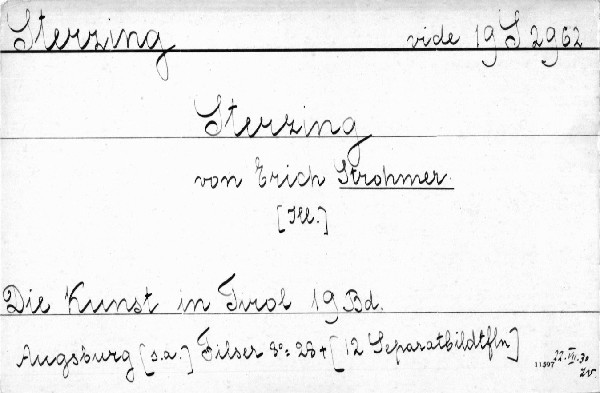 Sterzing vide 19 S 2962
Sterzing
von Erich Strohmer.
[Ill.]
Die Kunst in Tirol 19 Bd.
Augsburg [s.a.] Filser 8°= 28+[12 Separatbildtfln]
11597 22.VII.30